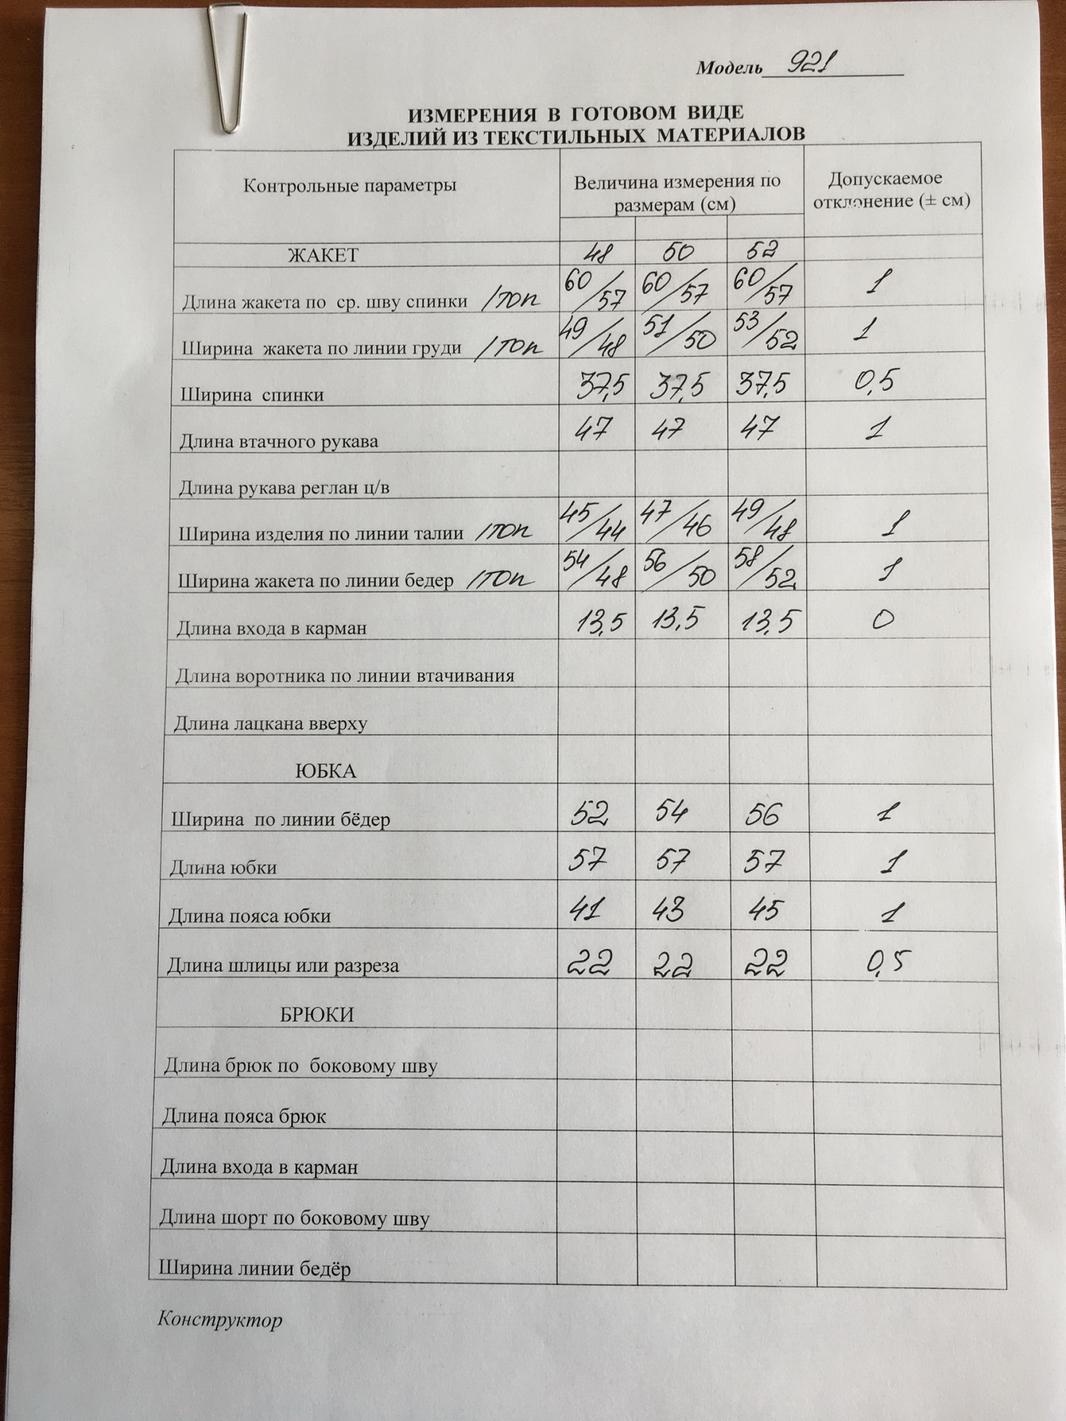 Модель 921
ИЗМЕРЕНИЯ В ГОТОВОМ ВИДЕ
ИЗДЕЛИЙ ИЗ ТЕКСТИЛЬНЫХ МАТЕРИАЛОВ
Контрольные параметры
Величина измерения по
размерам (см)
Допускаемое
отклонение (± см)
ЖАКЕТ 48 50 52
Длина жакета по ср. шву спинки /топ 60/57 60/57 60/57 1
Ширина жакета по линии груди /топ 49/48 51/50 53/52 1
Ширина спинки 37,5 37,5 37,5 0,5
Длина втачного рукава 47 47 47 1
Длина рукава реглан ц/в
Ширина изделия по линии талии /топ 45/44 47/46 49/48 1
Ширина жакета по линии бедер /топ 54/48 56/50 58/52 1
Длина входа в карман 13,5 13,5 13,5 0
Длина воротника по линии втачивания
Длина лацкана вверху
ЮБКА
Ширина по линии бёдер 52 54 56 1
Длина юбки 57 57 57 1
Длина пояса юбки 41 43 45 1
Длина шлицы или разреза 22 22 22 0,5
БРЮКИ
Длина брюк по боковому шву
Длина пояса брюк
Длина входа в карман
Длина шорт по боковому шву
Ширина линии бедёр
Конструктор